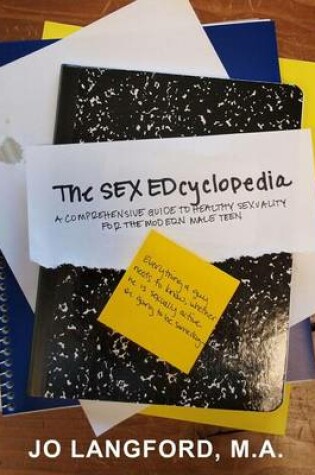 The SEX EDcyclopedia
A COMPREHENSIVE GUIDE TO HEALTHY SEXUALITY
FOR THE MODERN MALE TEEN
Everything a guy
needs to know, whether
he is sexually active
or going to be someday
JO LANGFORD, M.A.